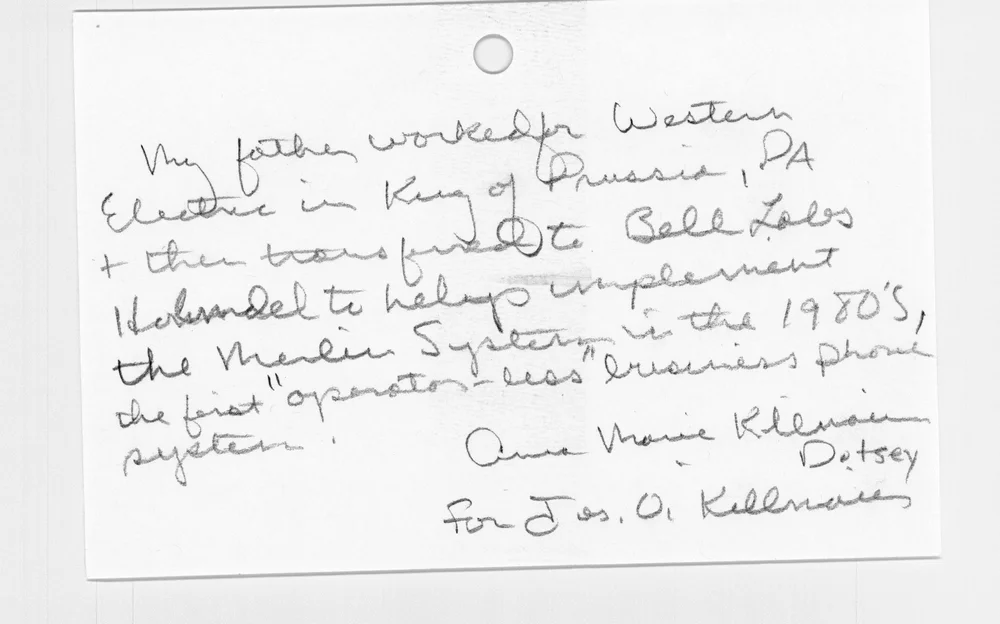 My father worked for Western
Electric in King of Prussia, PA
+ then transfired to Bell Labs
Holmdel to help implement
the Merlin System in the 1980's,
the first "operator-less" business phone
system.
Anna Marie
Dotsey
for Jos. O.